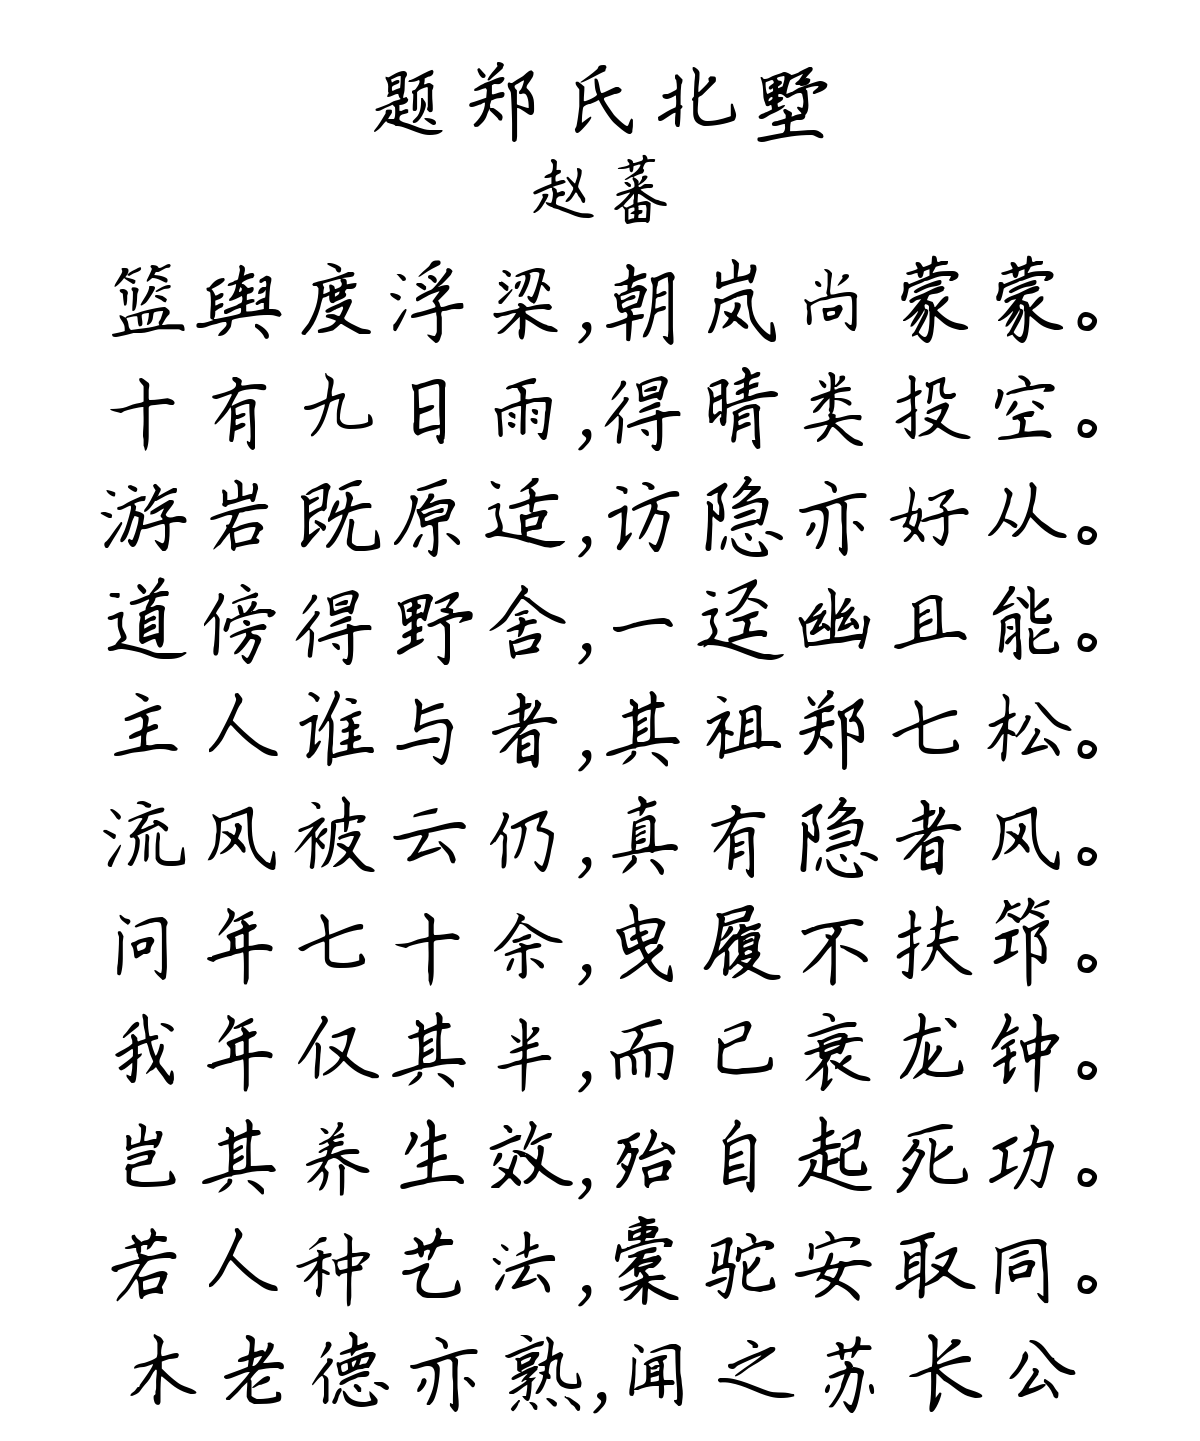 题郑氏北墅
赵蕃
篮舆度浮梁,朝岚尚蒙蒙。
十有九日雨,得晴类投空。
游岩既原适,访隐亦好从。
道傍得野舍,一迳幽且能。
主人谁与者,其祖郑七松。
流风被云仍,真有隐者风。
问年七十余,曳履不扶筇。
我年仅其半,而已衰龙钟。
岂其养生效,殆自起死功。
若人种艺法,橐驼安取同。
木老德亦熟,闻之苏长公